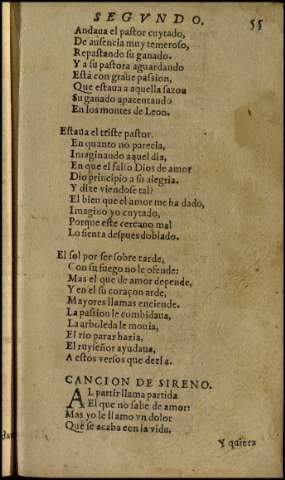 SEGVNDO.
55
Andaua el pastor cuytado,
De ausencia muy temeroso,
Repastando su ganado.
Y a su pastora aguardando
Está con graue passion,
Que estaua a aquella sazon
Su ganado apacentando
En los montes de Leon.
Estaua el triste pastor.
En quanto no parecia,
Imaginando aquel dia,
En que el falso Dios de amor
Dio principio a su alegria.
Y dize viendose tal:
El bien que el amor me ha dado,
Imagino yo cuytado,
Porque este cercano mal
Lo sienta despues doblado.
El sol por ser sobre tarde,
Con su fuego no le ofende:
Mas el que de amor depende,
Y en el su coraçon arde,
Mayores llamas enciende.
La passion le combidaua,
La arboleda le mouia,
El rio parar hazia,
El ruyseñor ayudaua,
A estos versos que dezia.
CANCION DE SIRENO.
AL partir llama partida
El que no sabe de amor:
Mas yo le llamo vn dolor
Que se acaba con la vida.
Y quiera